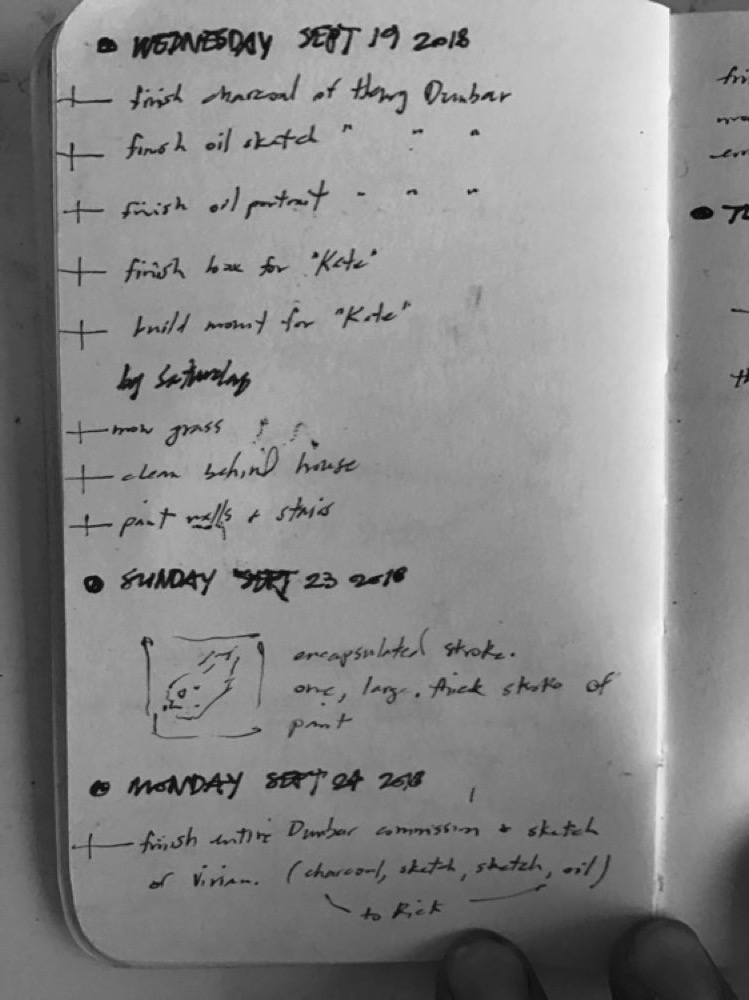 WEDNESDAY SEPT 19 2018
finish charcoal of Henry Dunbar
finish oil sketch " " "
finish oil portrait " " "
finish box for "Kate"
build mount for "Kate"
by Saturday
mow grass
clean behind house
paint walls & stairs
SUNDAY SEPT 23 2018
encapsulated stroke.
one, large, thick stroke of
paint
MONDAY SEPT 24 2018
finish entire Dunbar commission & sketch
of Vivian. (charcoal, sketch, sketch, oil)
to Rick